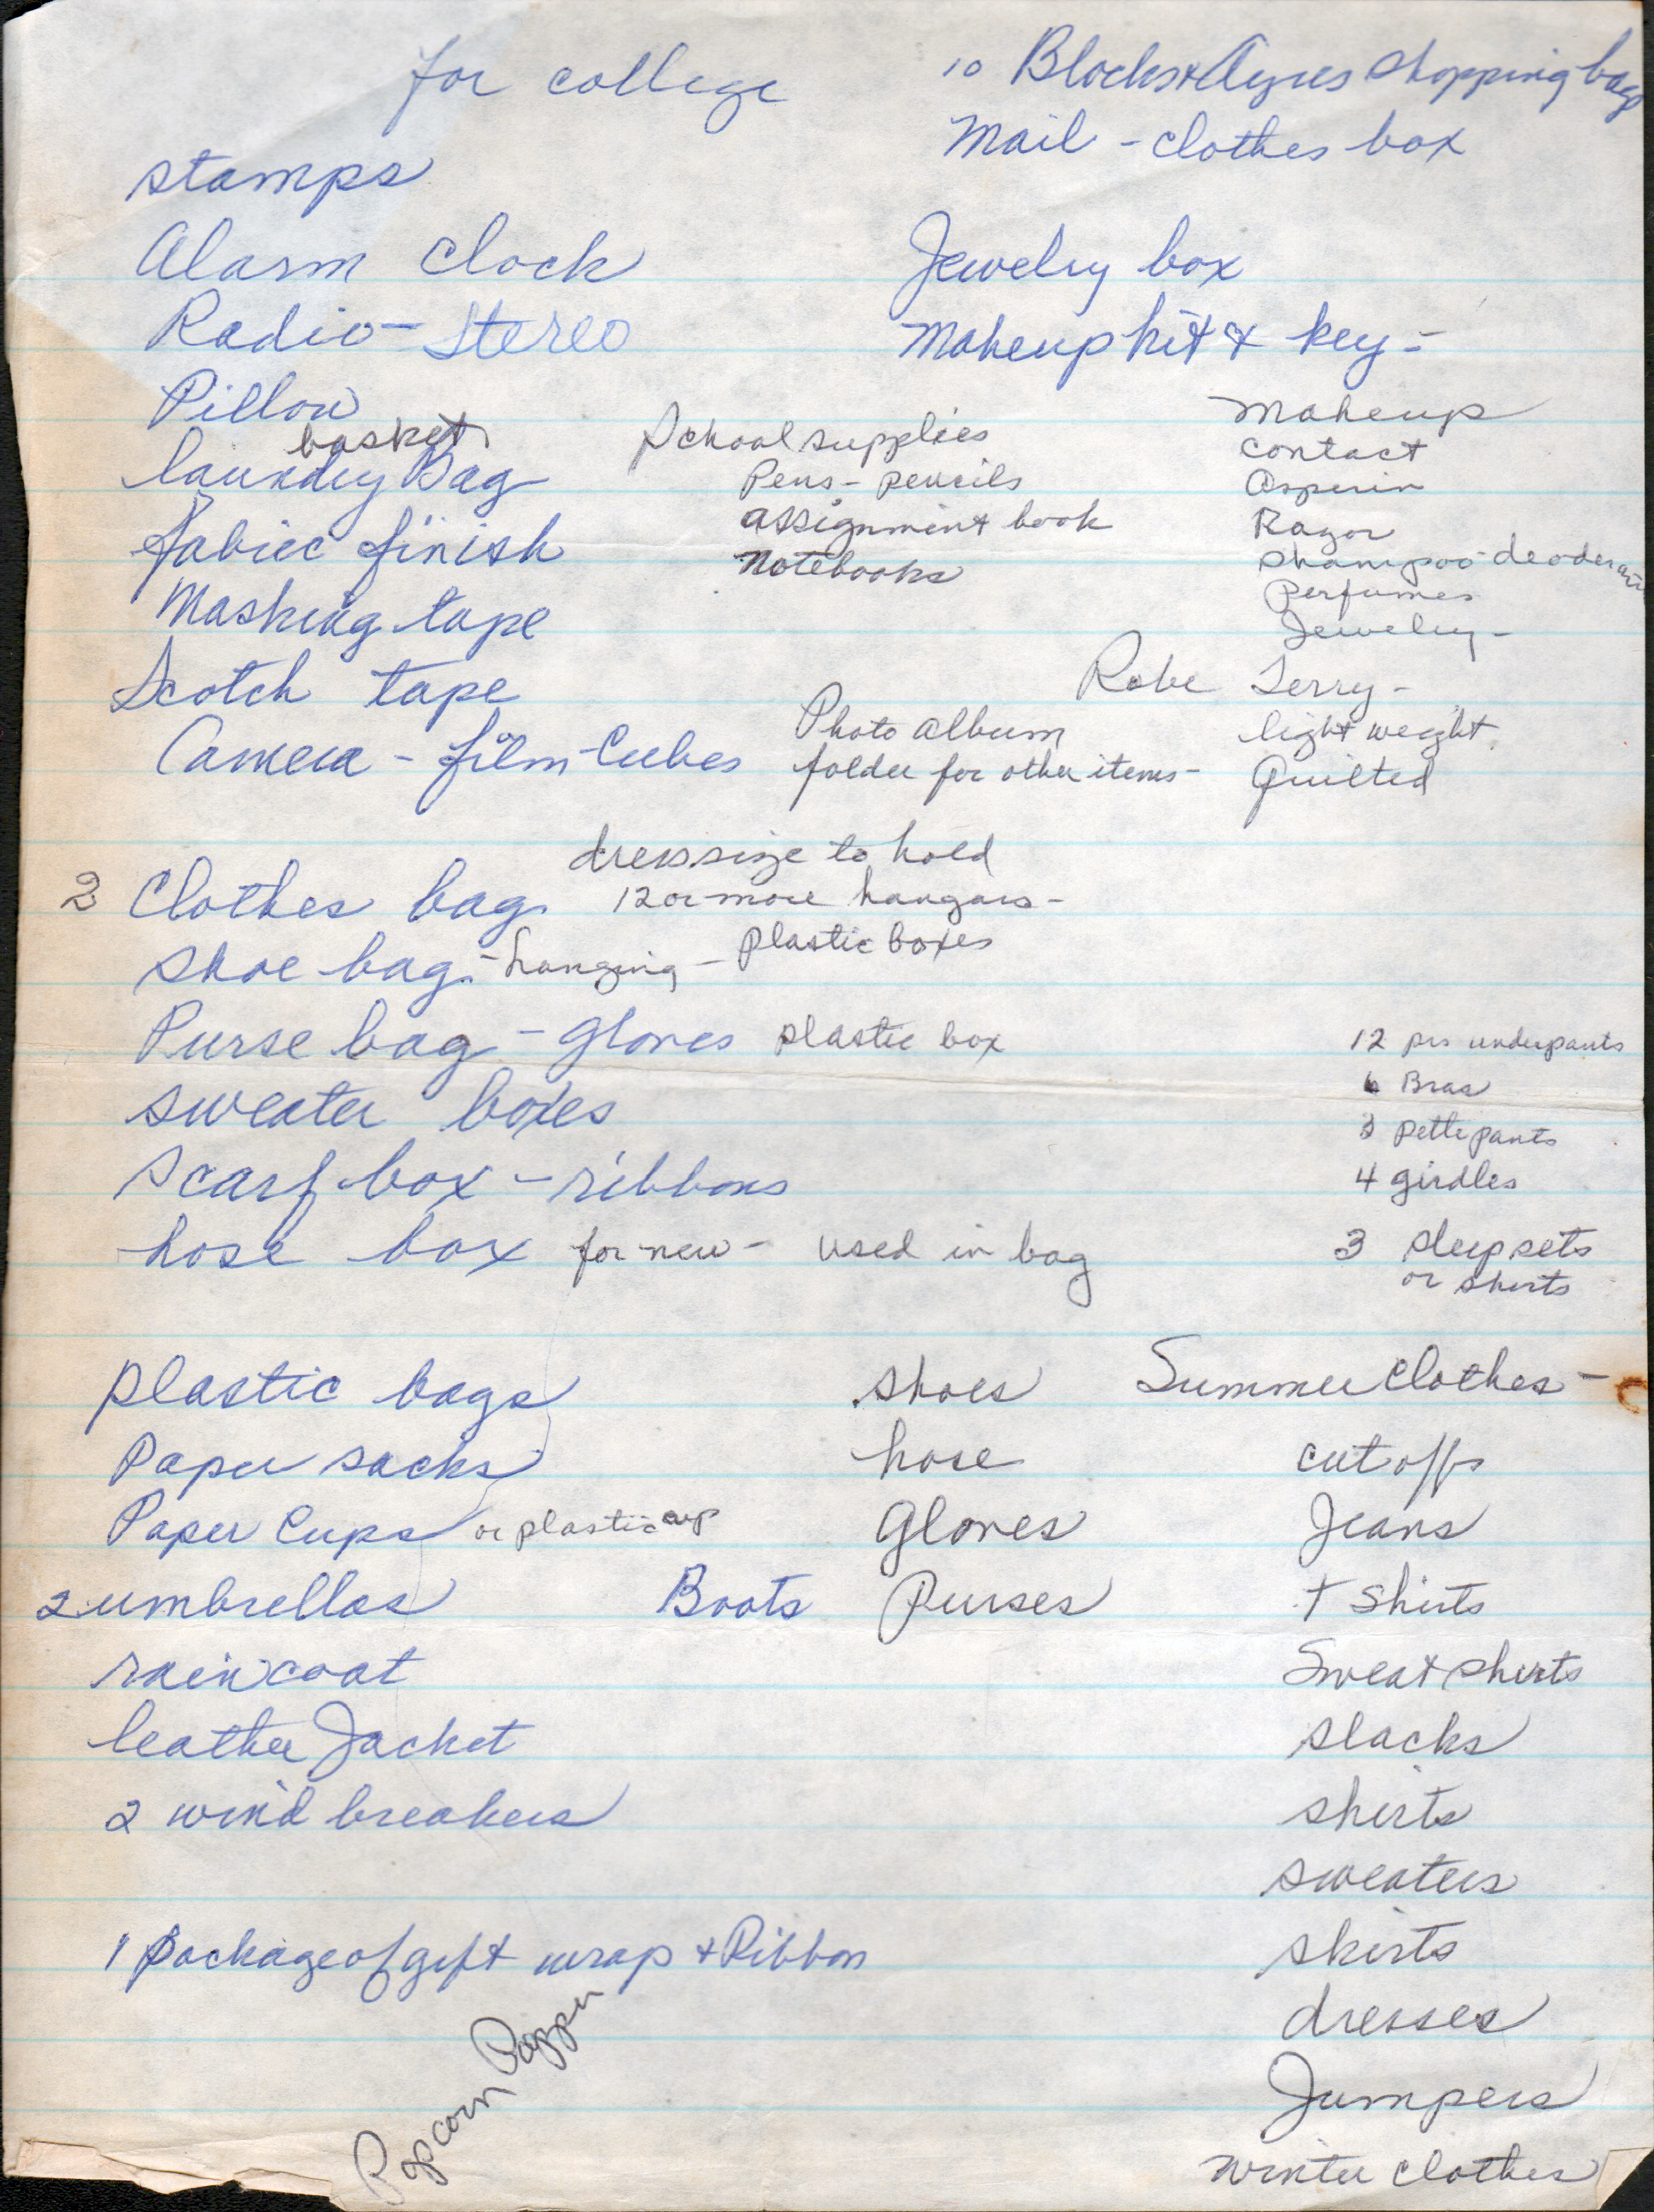 for college
10 Blocks & Ayres Shopping bags
Mail - clothes box
stamps
Alarm Clock
Jewelry box
Radio - Stereo
Makeup kit & key -
Pillow
basket
laundry Bag
fabric finish
Masking tape
Scotch tape
Camera - film - Cubes
School supplies
Pens - pencils
assignment book
Notebooks
Makeup
contact
Asperin
Razor
Shampoo - deoderant
Perfumes
Jewelry -
Robe Terry -
light weight
Quilted
Photo album
folder for other items -
dress size to hold
2 Clothes bag 12 or more hangars -
shoe bag - hanging - plastic boxes
Purse bag - Gloves plastic box
sweater boxes
scarf box - ribbons
hose box for new - used in bag
12 prs underpants
6 Bras
3 pettipants
4 girdles
3 sleep sets
or shirts
plastic bags
Paper sacks
Paper Cups or plastic cup
2 umbrellas
raincoat
leather Jacket
2 wind breakers
Boots
shoes
hose
Gloves
Purses
Summer Clothes -
cut offs
Jeans
T Shirts
Sweat shirts
slacks
shirts
sweaters
skirts
dresses
Jumpers
winter clothes
1 package of gift wrap + Ribbon
Popcorn Popper